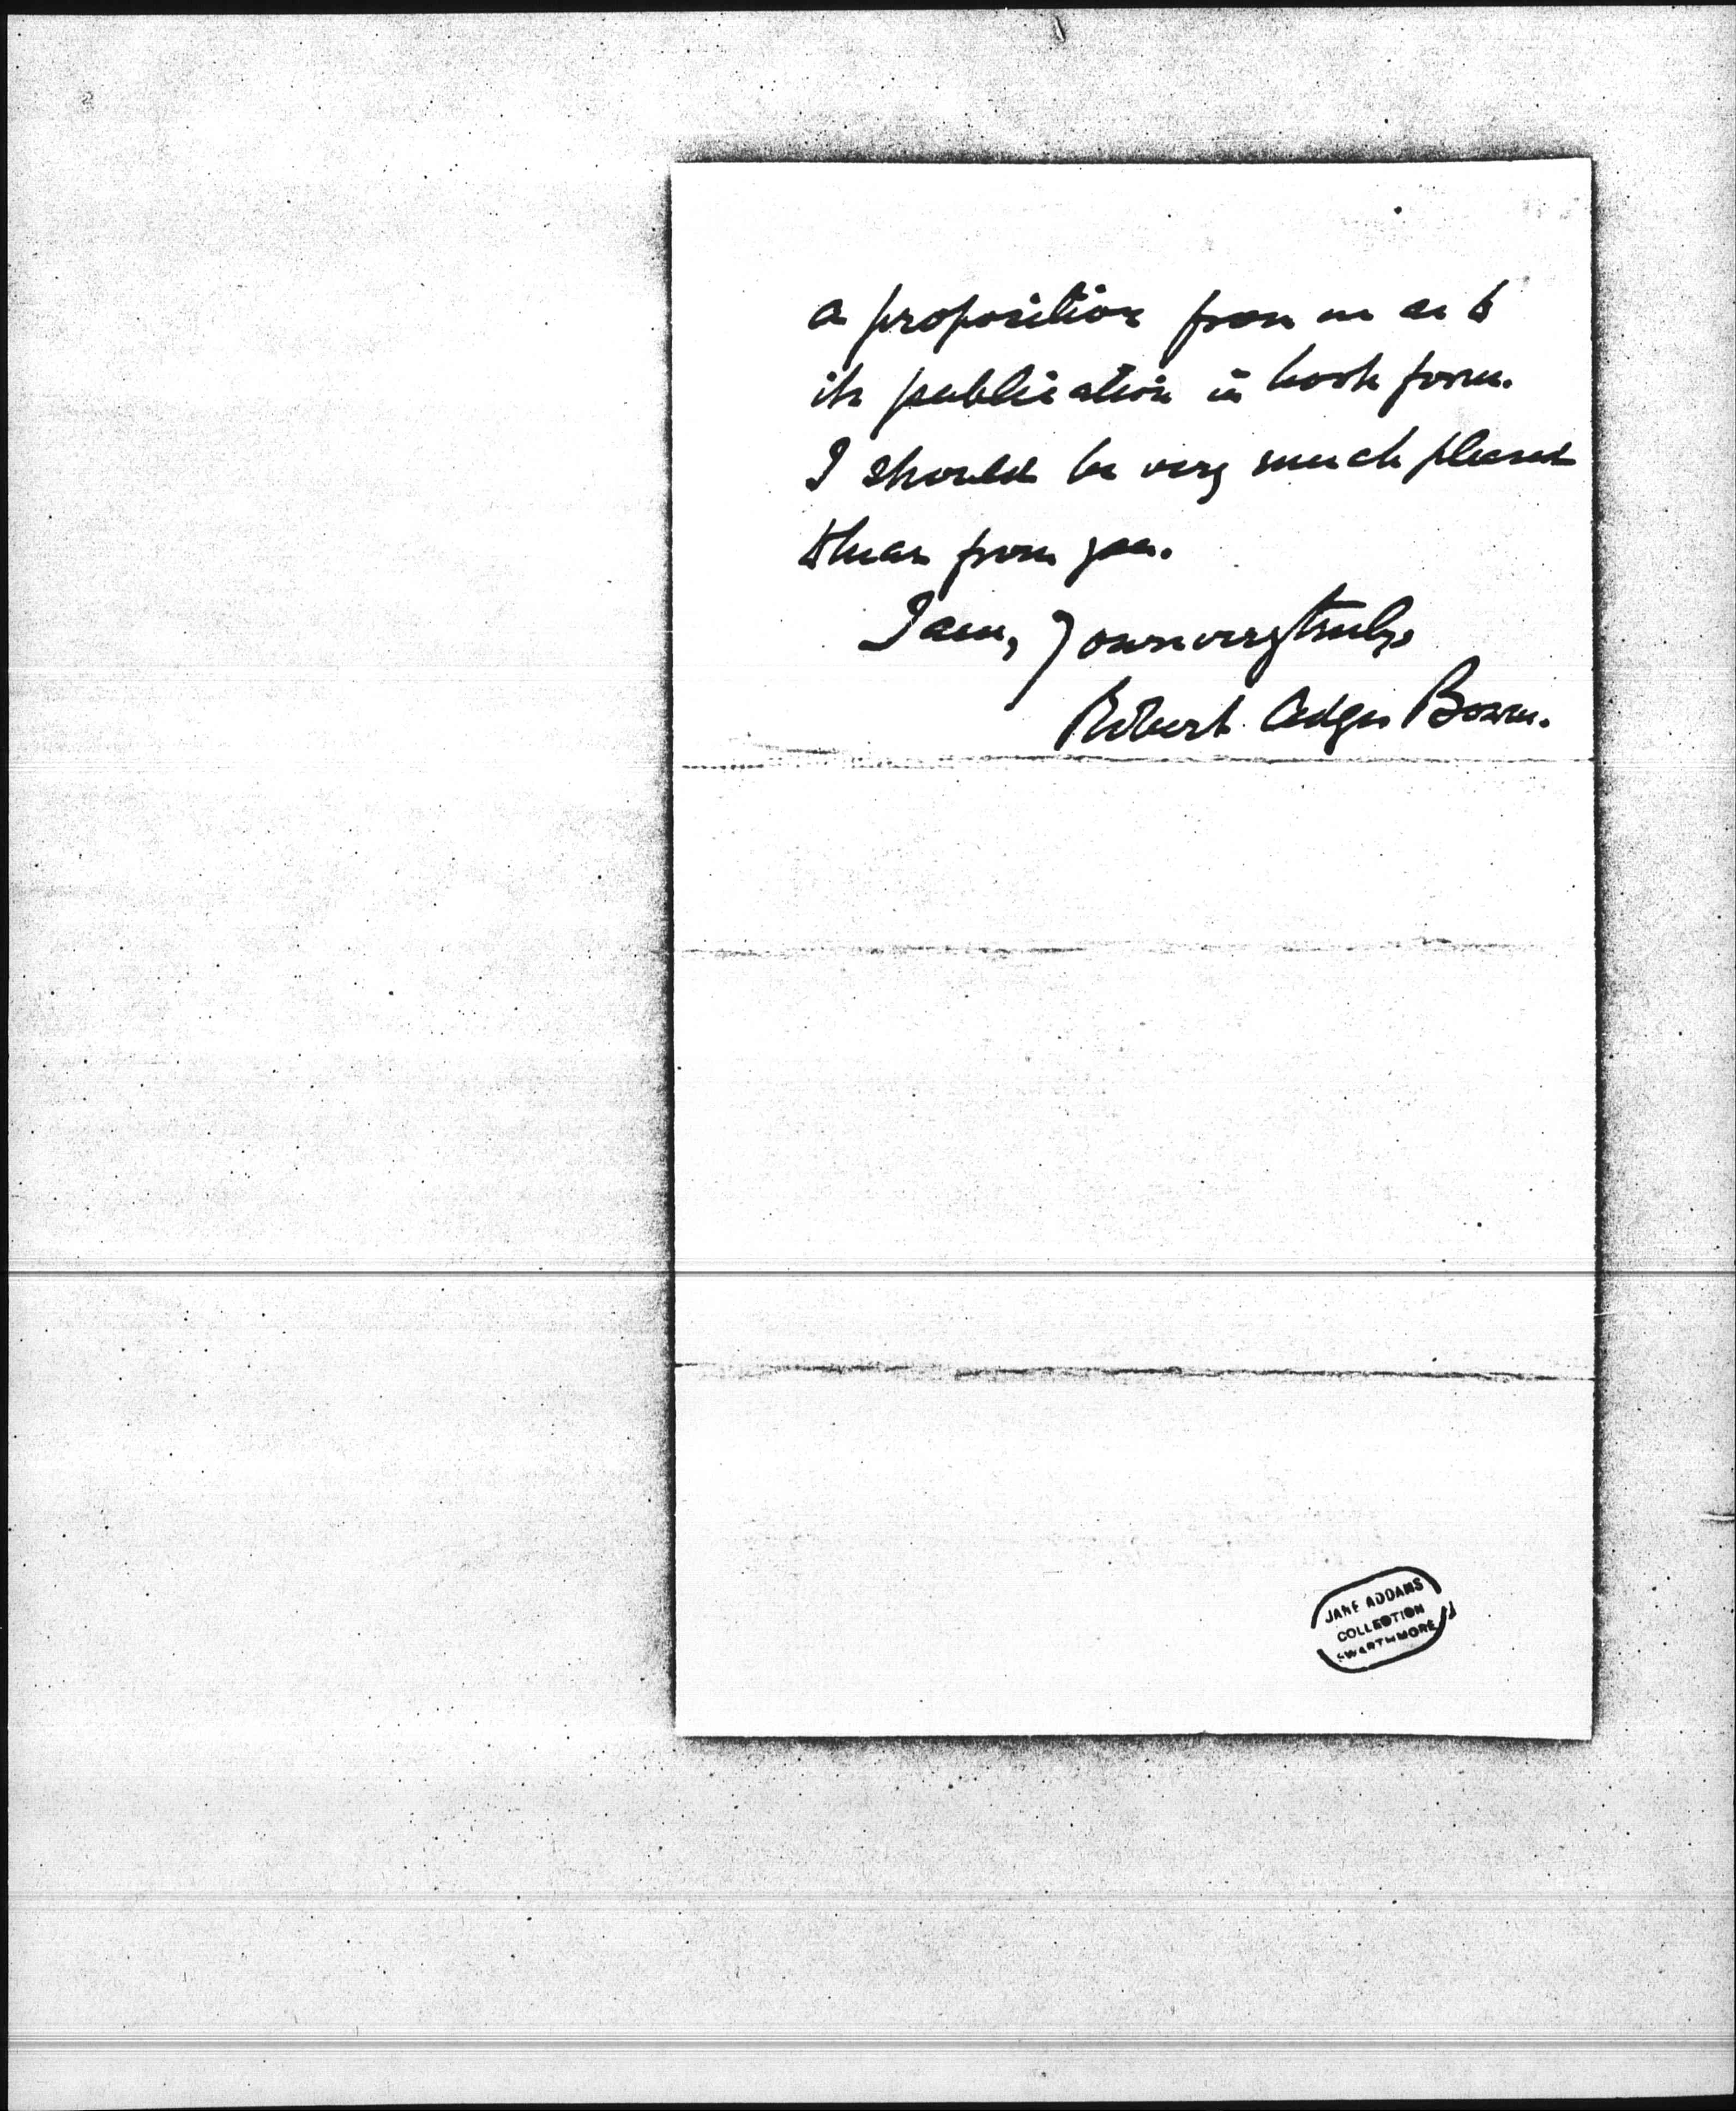 a proposition from me as to
its publication in book form.
I should be very much pleased
to hear from you.
I am, Yours very truly,
Robert Adger Bowen.
JANE ADDAMS
COLLECTION
SWARTHMORE